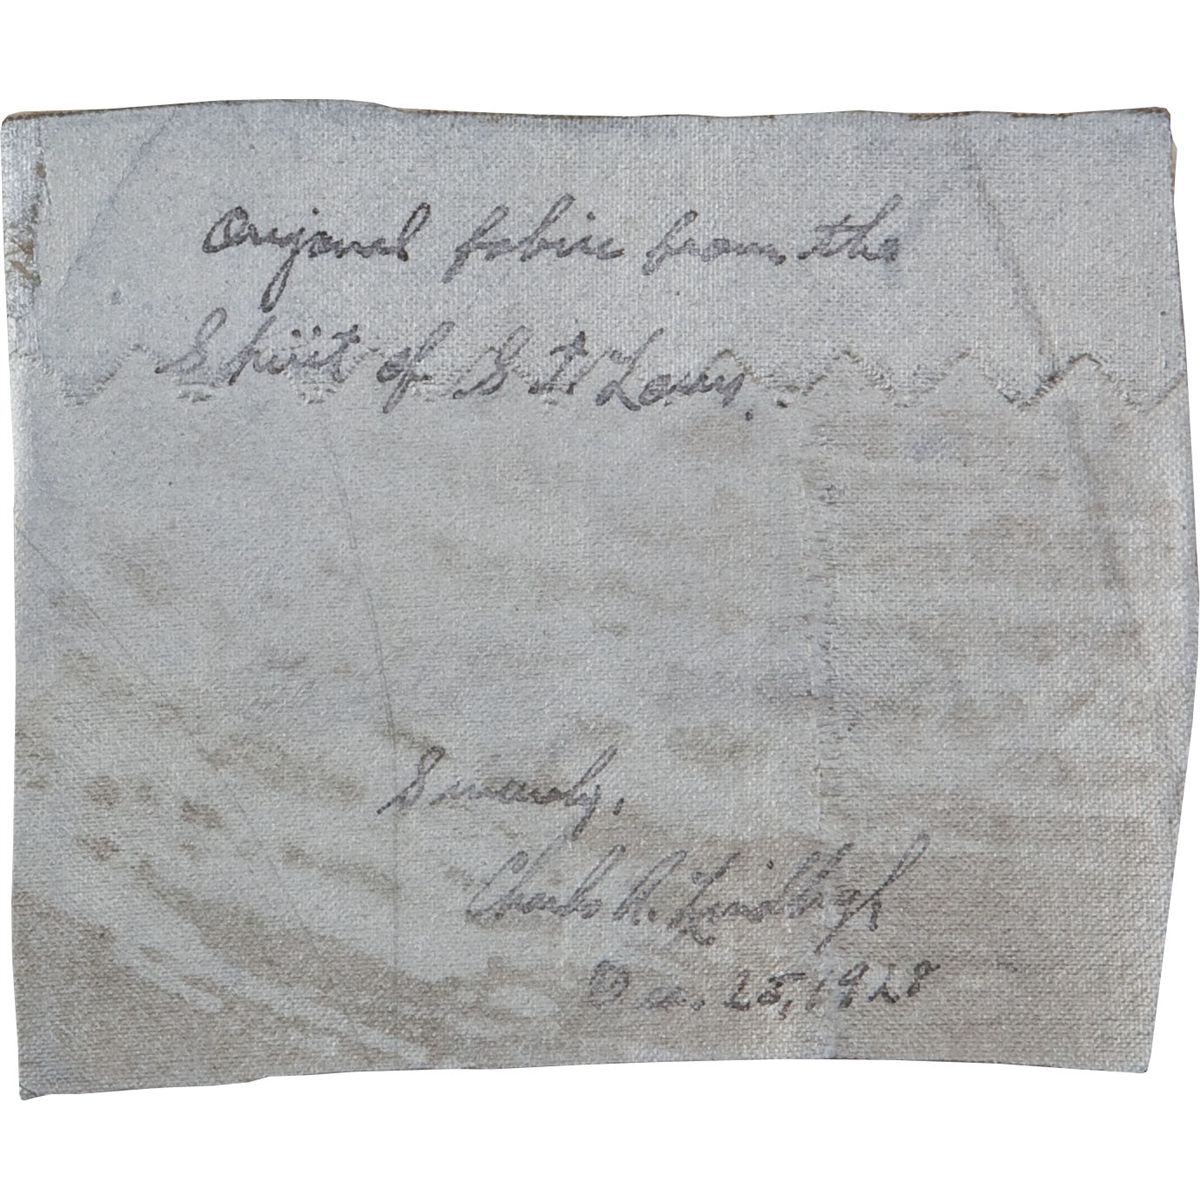 Original fabric from the
Spirit of St Louis.
Sincerely,
Charles A. Lindbergh
Dec. 25, 1928